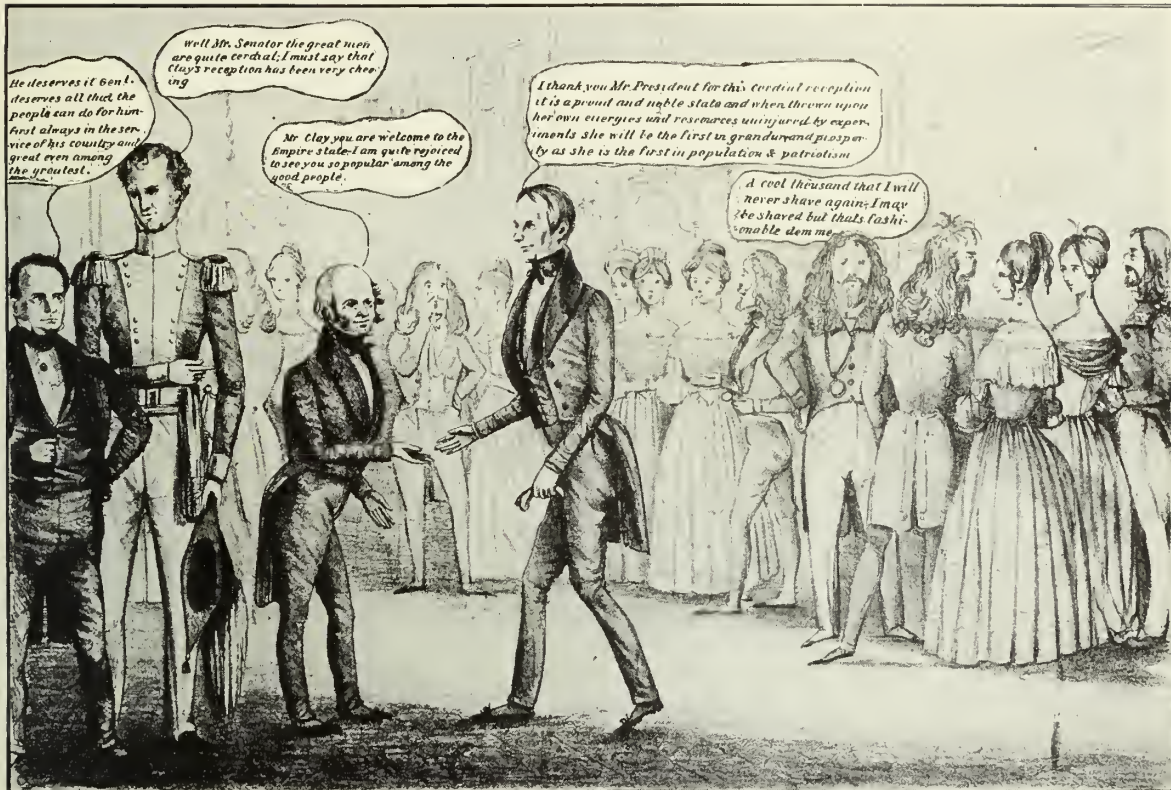 He deserves it Genl.
deserves all that the
people can do for him-
first always in the ser-
vice of his country and
great even among
the greatest.
Well Mr. Senator the great men
are quite cordial; I must say that
Clay's reception has been very chee-
ing
Mr. Clay you are welcome to the
Empire state- I am quite rejoiced
to see you so popular among the
good people.
I thank you Mr. President for this cordial reception
it is a proud and noble state and when thrown upon
her own energies and resources uninjured by exper-
iments she will be the first in grandur and prosper-
ty as she is the first in population & patriotism
A cool thousand that I will
never shave again; I may
be shaved but thats fashi-
onable demme